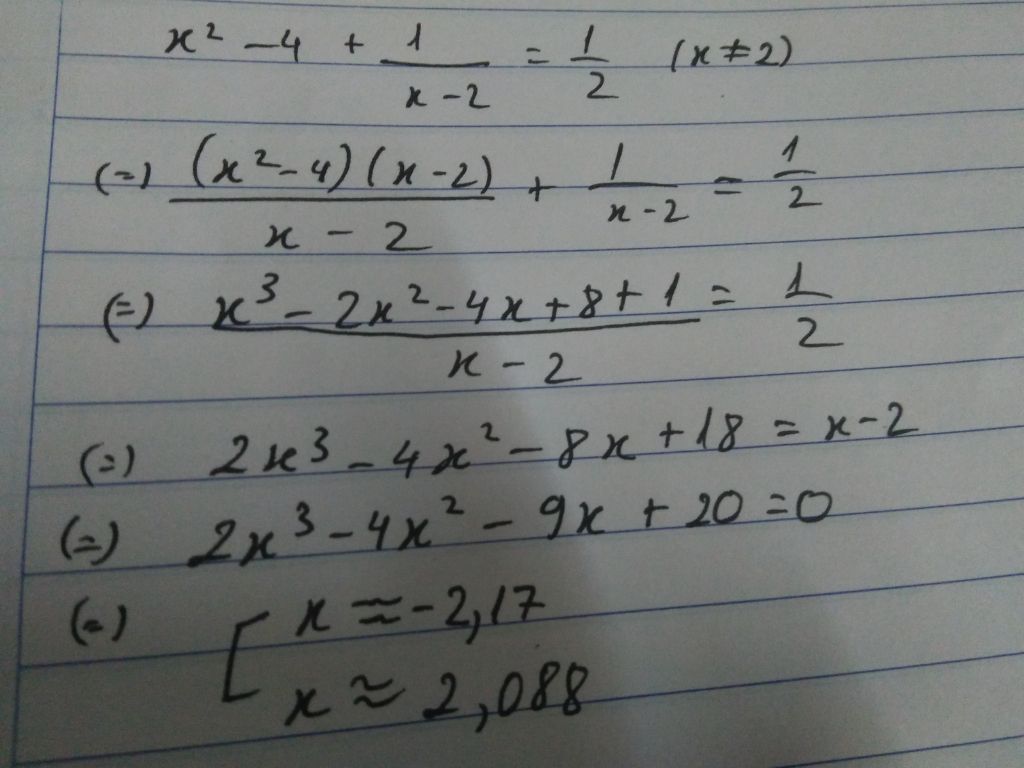 x² - 4 + 1/(x-2) = 1/2 (x ≠ 2)
(=) (x²-4)(x-2)/(x-2) + 1/(x-2) = 1/2
(=) (x³ - 2x² - 4x + 8 + 1)/(x-2) = 1/2
(=) 2x³ - 4x² - 8x + 18 = x-2
(=) 2x³ - 4x² - 9x + 20 = 0
(=) [ x ≈ -2,17
x ≈ 2,088